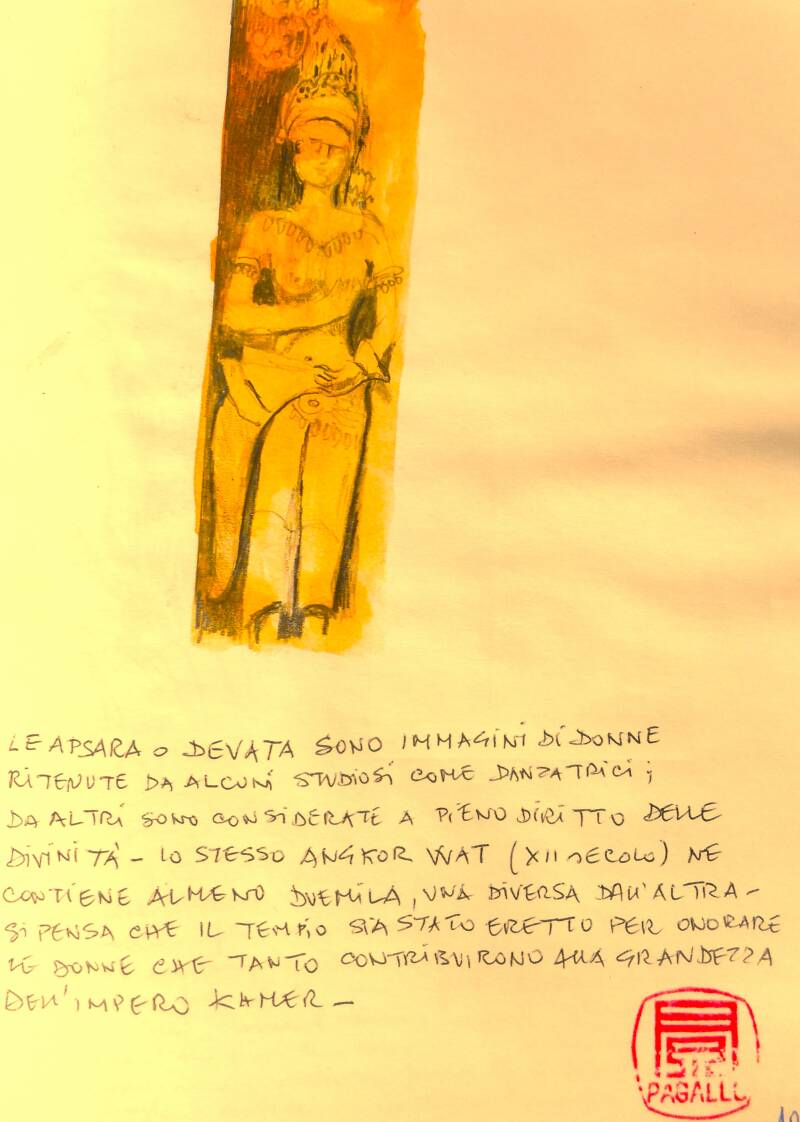 LE APSARA O DEVATA SONO IMMAGINI DI DONNE
RITENUTE DA ALCUNI STUDIOSI COME DANZATRICI;
DA ALTRI SONO CONSIDERATE A PIENO DIRITTO DELLE
DIVINITÀ - LO STESSO ANGKOR WAT (XII SECOLO) NE
CONTIENE ALMENO DUEMILA, UNA DIVERSA DALL'ALTRA -
SI PENSA CHE IL TEMPIO SIA STATO ERETTO PER ONORARE
LE DONNE CHE TANTO CONTRIBUIRONO ALLA GRANDEZZA
DELL'IMPERO KHMER -